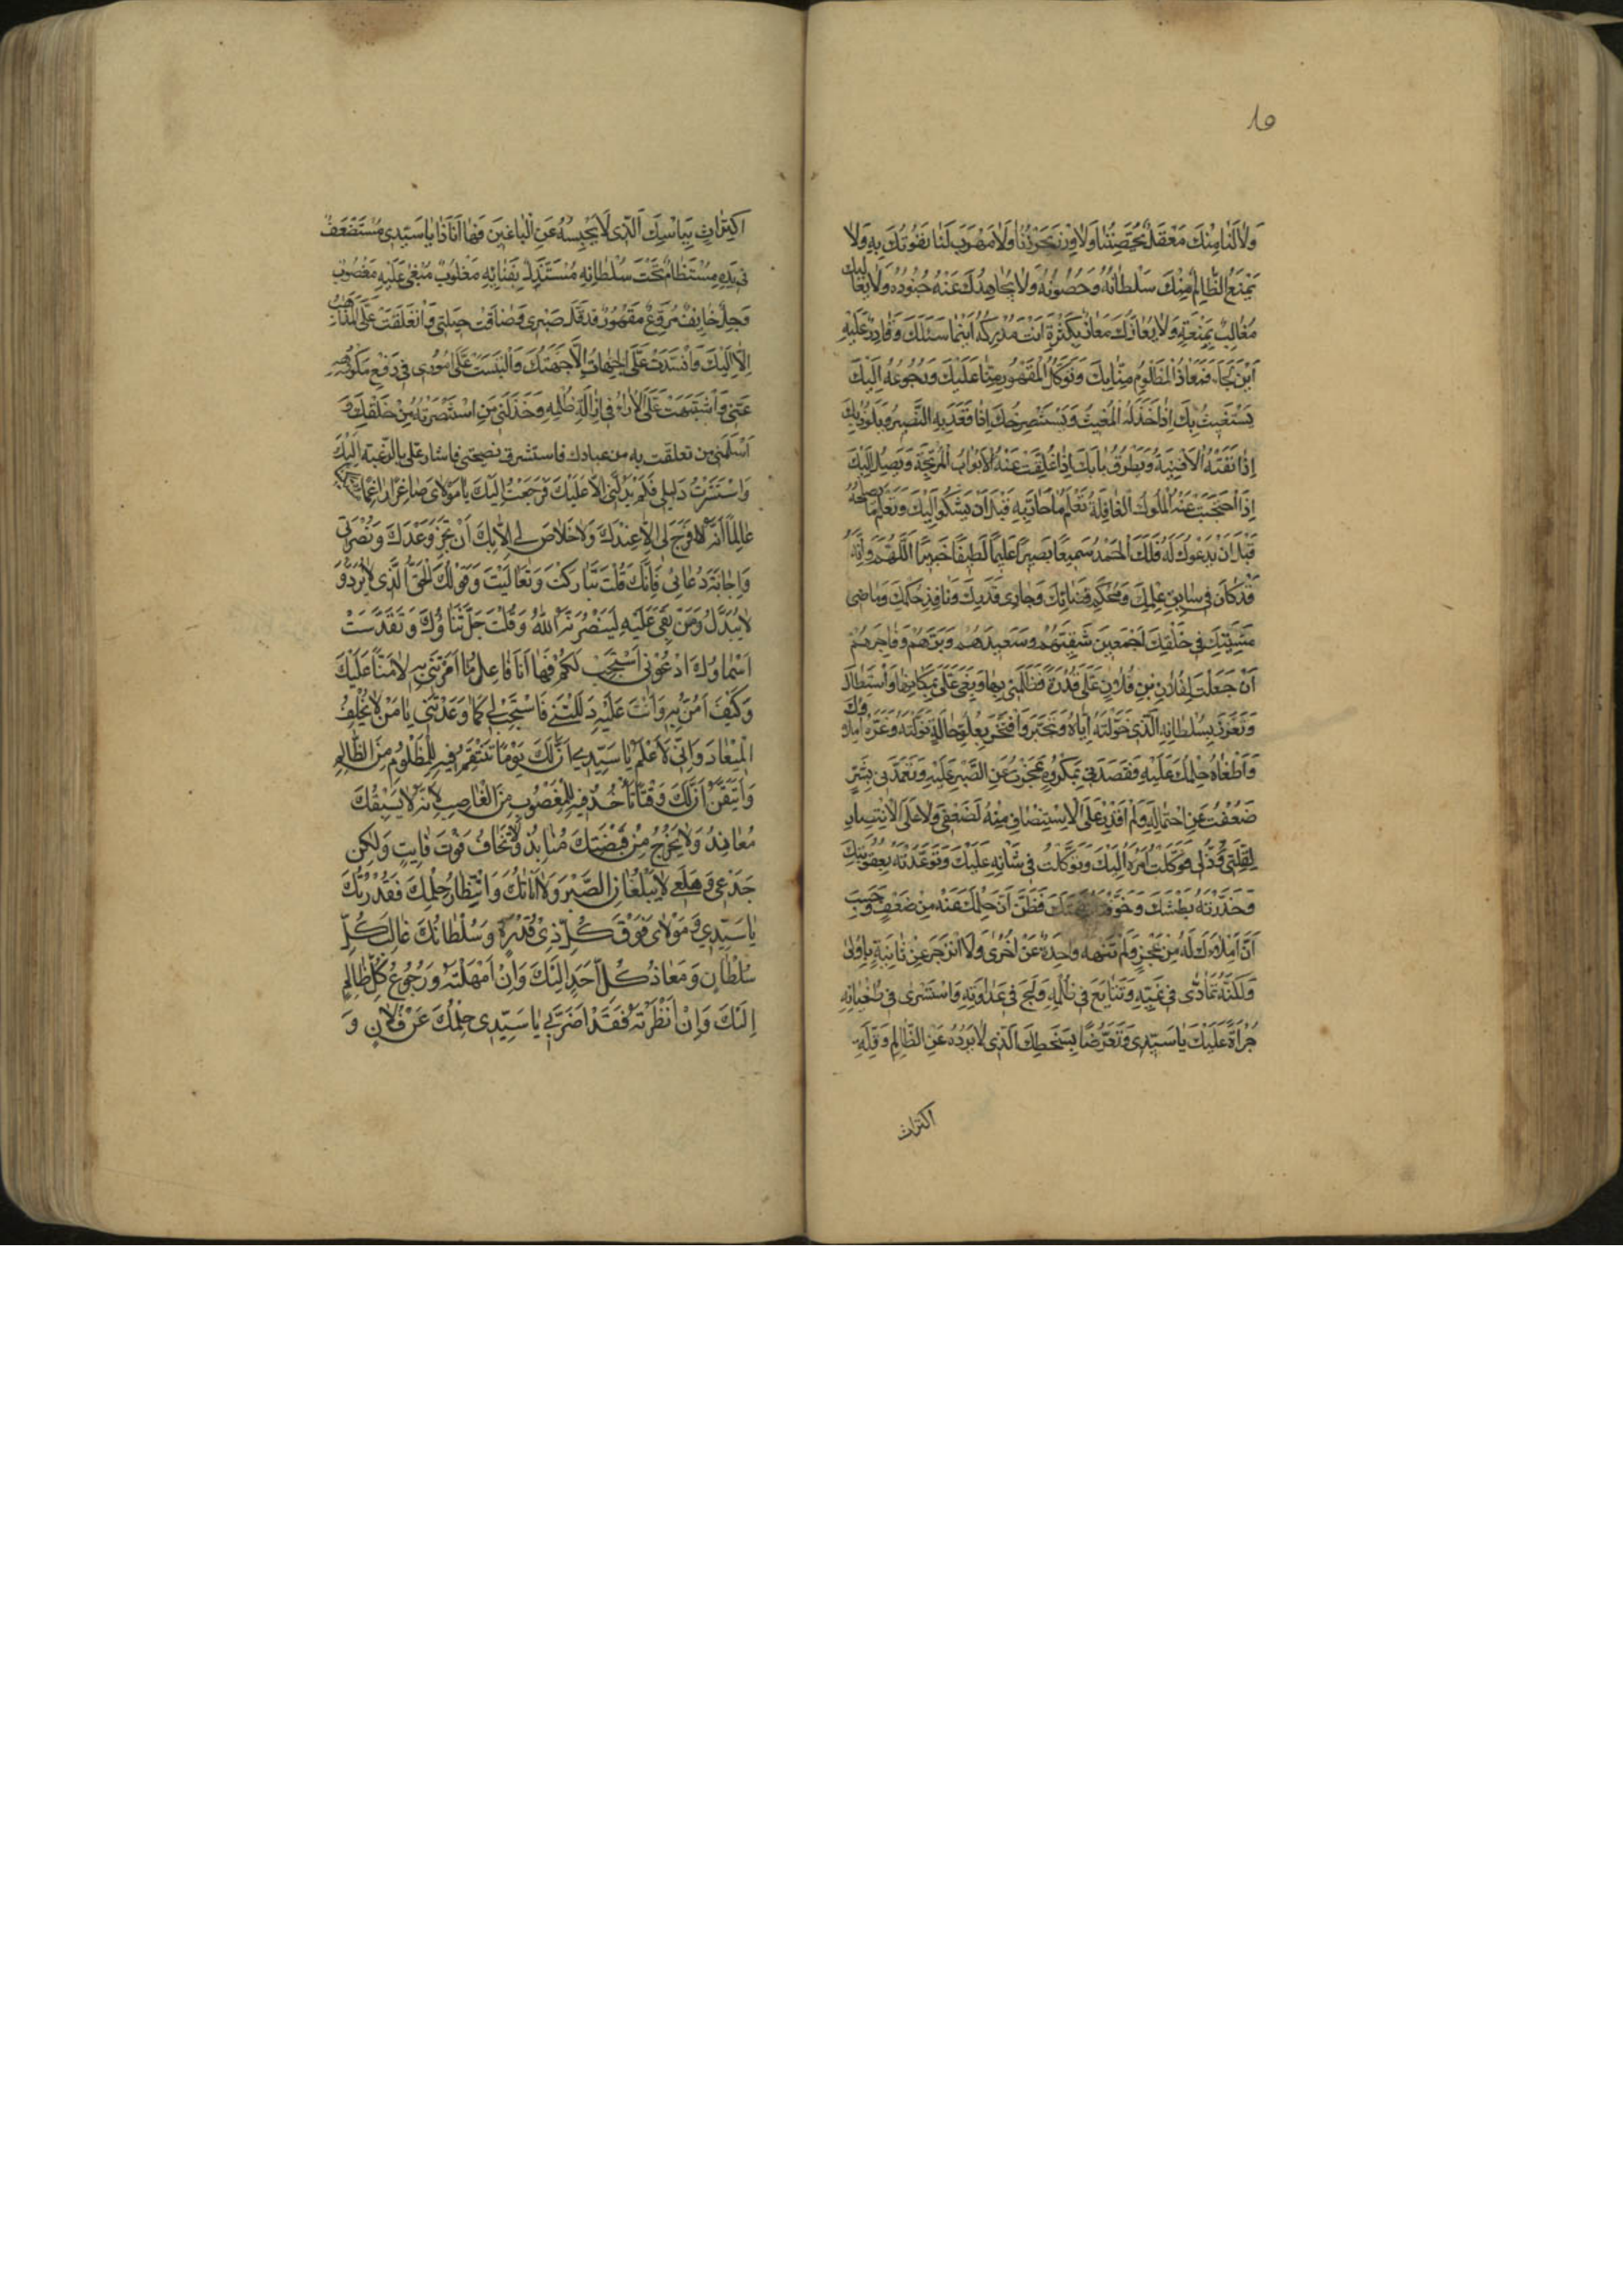 ٨٥
وَلَا لَنَا مِنْكَ مَعْقَلٌ يُحَصِّنُنَا وَلَا وِزْرٌ يُحْرِزُنَا وَلَا مَهْرَبَ لَنَا نَفُوتُكَ بِهِ وَلَا
يَمْنَعُ الظَّالِمُ مِنْكَ سَلْطَانُهُ وَحُصُونُهُ وَلَا يُجَاهِدُكَ عَنْهُ جُنُودُهُ وَلَا يُغَالِبُكَ
مُغَالِبٌ بِمَنْعَةٍ وَلَا يُعَازُّكَ مَعَازٌّ بِكَثْرَةٍ اَنْتَ مُدْرِكُهُ اَيْنَمَا سَلَكَ وَقَادِرٌ عَلَيْهِ
اَيْنَ لَجَأَ فَمَعَاذُ الْمَظْلُومِ مِنَّا بِكَ وَتَوَكُّلُ الْمَقْهُورِ مِنَّا عَلَيْكَ وَرُجُوعُهُ اِلَيْكَ
يَسْتَغِيثُ بِكَ اِذَا خَذَلَهُ الْمُغِيثُ وَيَسْتَصْرِخُكَ اِذَا قَعَدَ بِهِ النَّصِيرُ وَيَلُوذُ بِكَ
اِذَا نَفَتْهُ الْاَفْنِيَةُ وَيَطْرُقُ بَابَكَ اِذَا غُلِقَتْ عَنْهُ الْاَبْوَابُ الْمُرْتَجَةُ وَيَصِلُ اِلَيْكَ
اِذَا احْتَجَبَتْ عَنْهُ الْمُلُوكُ الْغَافِلَةُ تَعْلَمُ مَا حَلَّ بِهِ قَبْلَ اَنْ يَشْكُوَ اِلَيْكَ وَتَعْلَمُ مَا يُصْلِحُهُ
قَبْلَ اَنْ يَدْعُوكَ لَهُ فَلَكَ الْحَمْدُ سَمِيعًا بَصِيرًا عَلِيمًا لَطِيفًا خَبِيرًا اَللّٰهُمَّ وَاِنَّهُ
قَدْ كَانَ فِي سَابِقِ عِلْمِكَ وَمُحْكَمِ قَضَائِكَ وَجَارِي قَدَرِكَ وَنَافِذِ حُكْمِكَ وَمَاضِي
مَشِيَّتِكَ فِي خَلْقِكَ اَجْمَعِينَ شَقِيِّهِمْ وَسَعِيدِهِمْ وَبَرِّهِمْ وَفَاجِرِهِمْ
اَنْ جَعَلْتَ لِفُلَانِ بْنِ فُلَانٍ عَلَيَّ قُدْرَةً فَظَلَمَنِي بِهَا وَبَغَى عَلَيَّ بِمَكَانِهَا وَاسْتَطَالَ
وَتَعَزَّزَ بِسُلْطَانِهِ الَّذِي خَوَّلْتَهُ اِيَّاهُ وَتَجَبَّرَ وَافْتَخَرَ بِعُلُوِّ حَالِهِ نَوَّلْتَهُ وَغَرَّهُ اِمْلَاؤُكَ
وَاَطْغَاهُ حِلْمُكَ عَلَيْهِ فَقَصَدَنِي بِمَكْرُوهٍ عَجَزْتُ عَنِ الصَّبْرِ عَلَيْهِ وَتَعَمَّدَنِي بِشَرٍّ
ضَعُفْتُ عَنِ احْتِمَالِهِ وَلَمْ اَقْدِرْ عَلَى الْاِسْتِنْصَافِ مِنْهُ لِضَعْفِي وَلَا عَلَى الْاِنْتِصَارِ
لِقِلَّتِي وَذُلِّي فَوَكَلْتُ اَمْرَهُ اِلَيْكَ وَتَوَكَّلْتُ فِي شَأْنِهِ عَلَيْكَ وَتَوَعَّدْتُهُ بِعُقُوبَتِكَ
وَحَذَّرْتُهُ بَطْشَكَ وَخَوَّفْتُهُ نَقِمَتَكَ فَظَنَّ اَنَّ حِلْمَكَ عَنْهُ مِنْ ضَعْفٍ وَحَسِبَ
اَنَّ اِمْلَاءَكَ لَهُ مِنْ عَجْزٍ وَلَمْ تَنْهَهُ وَاحِدَةٌ عَنْ اُخْرَى وَلَا انْزَجَرَ عَنْ ثَانِيَةٍ بِاُولَى
وَلَكِنَّهُ تَمَادَى فِي غَيِّهِ وَتَتَابَعَ فِي ظُلْمِهِ وَلَجَّ فِي عَدَاوَتِهِ وَاسْتَشْرَى فِي طُغْيَانِهِ
جُرْأَةً عَلَيْكَ يَا سَيِّدِي وَتَعَرُّضًا بِسَخَطِكَ الَّذِي لَا تَرُدُّهُ عَنِ الظَّالِمِ وَقِلَّةِ
اكتراث
اكْتِرَاثٍ بِبَأْسِكَ الَّذِي لَا تَحْبِسُهُ عَنِ الْبَاغِينَ فَهَا اَنَا ذَا يَا سَيِّدِي مُسْتَضْعَفٌ
فِي يَدِهِ مُسْتَضَامٌ تَحْتَ سُلْطَانِهِ مُسْتَذَلٌّ بِفِنَائِهِ مَغْلُوبٌ مَبْغِيٌّ عَلَيْهِ مَغْضُوبٌ
وَجِلٌ خَائِفٌ مُرَوَّعٌ مَقْهُورٌ قَدْ قَلَّ صَبْرِي وَضَاقَتْ حِيلَتِي وَانْغَلَقَتْ عَلَيَّ الْمَذَاهِبُ
اِلَّا اِلَيْكَ وَانْسَدَّتْ عَلَيَّ الْجِهَاتُ اِلَّا جِهَتُكَ وَالْتَبَسَتْ عَلَيَّ اُمُورِي فِي دَفْعِ مَكْرُوهِهِ
عَنِّي وَاشْتَبَهَتْ عَلَيَّ الْآرَاءُ فِي اِزَالَةِ ظُلْمِهِ وَخَذَلَنِي مَنِ اسْتَنْصَرْتُهُ مِنْ خَلْقِكَ وَ
اَسْلَمَنِي من تعلقت به من عبادك فاستشرت نصيحتي فاشار علي بالرغبة اِلَيْكَ
وَاسْتَرْشَدْتُ دَلِيلِي فَلَمْ يَدُلَّنِي اِلَّا عَلَيْكَ فَرَجَعْتُ اِلَيْكَ يَا مَوْلَايَ صَاغِرًا رَاغِمًا
عَالِمًا اَنَّهُ لَا فَرَجَ لِي اِلَّا عِنْدَكَ وَلَا خَلَاصَ لِي اِلَّا بِكَ اَنْ تُنْجِزَ وَعْدَكَ وَنُصْرَتِي
وَاِجَابَةَ دُعَائِي فَاِنَّكَ قُلْتَ تَبَارَكْتَ وَتَعَالَيْتَ وَقَوْلُكَ الْحَقُّ الَّذِي لَا يُرَدُّ وَ
لَا يُبَدَّلُ وَمَنْ بُغِيَ عَلَيْهِ لَيَنْصُرَنَّهُ اللّٰهُ وَقُلْتَ جَلَّ ثَنَاؤُكَ وَتَقَدَّسَتْ
اَسْمَاؤُكَ ادْعُونِي اَسْتَجِبْ لَكُمْ فَهَا اَنَا فَاعِلٌ مَا اَمَرْتَنِي بِهِ لَا مَنًّا عَلَيْكَ
وَكَيْفَ اَمُنُّ بِهِ وَاَنْتَ عَلَيْهِ دَلَلْتَنِي فَاسْتَجِبْ لِي كَمَا وَعَدْتَنِي يَا مَنْ لَا يُخْلِفُ
الْمِيعَادَ وَاِنِّي لَاَعْلَمُ يَا سَيِّدِي اَنَّ لَكَ يَوْمًا تَنْتَقِمُ فِيهِ لِلْمَظْلُومِ مِنَ الظَّالِمِ
وَاَتَيَقَّنُ اَنَّ لَكَ وَقْتًا تَأْخُذُ فِيهِ لِلْمَغْصُوبِ مِنَ الْغَاصِبِ لِاَنَّهُ لَا يَسْبِقُكَ
مُعَانِدٌ وَلَا يَخْرُجُ مِنْ قَبْضَتِكَ مُنَابِذٌ وَلَا تَخَافُ فَوْتَ فَائِتٍ وَلَكِنْ
جَذَعِي وَهَلَعِي لَا يَبْلُغَانِ الصَّبْرَ وَلَا اَنَاتُكَ وَانْتِظَارُ حِلْمِكَ فَقُدْرَتُكَ
يَا سَيِّدِي وَمَوْلَايَ فَوْقَ كُلِّ ذِي قُدْرَةٍ وَسُلْطَانُكَ غَالِبُ كُلِّ
سُلْطَانٍ وَمَعَادُ كُلِّ اَحَدٍ اِلَيْكَ وَاِنْ اَمْهَلْتَهُ وَرُجُوعُ كُلِّ ظَالِمٍ
اِلَيْكَ وَاِنْ اَنْظَرْتَهُ فَقَدْ اَضَرَّ بِي يَا سَيِّدِي حِلْمُكَ عَنْ فُلَانٍ وَ